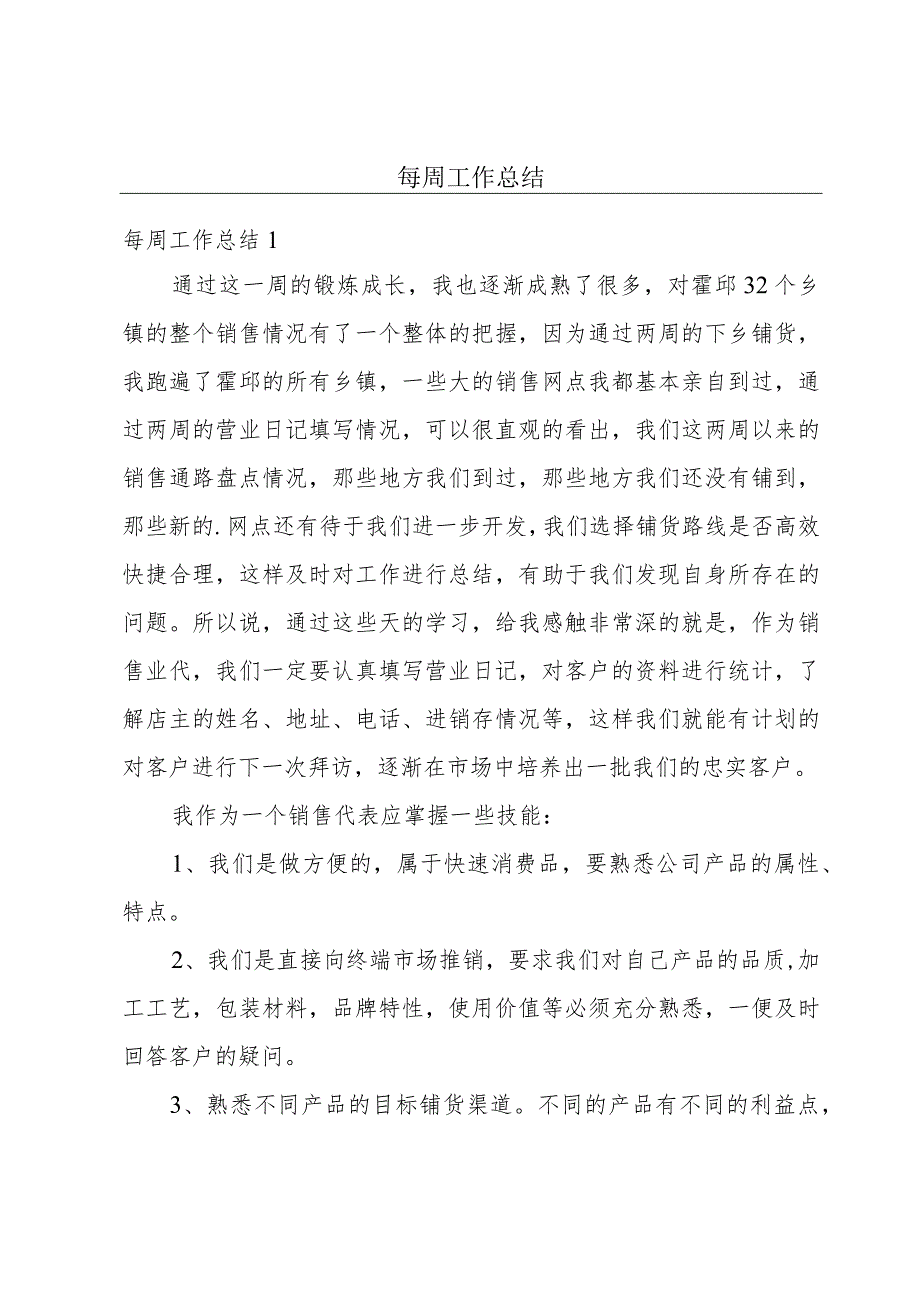 每周工作总结
每周工作总结 1
通过这一周的锻炼成长，我也逐渐成熟了很多，对霍邱 32 个乡
镇的整个销售情况有了一个整体的把握，因为通过两周的下乡铺货，
我跑遍了霍邱的所有乡镇，一些大的销售网点我都基本亲自到过，通
过两周的营业日记填写情况，可以很直观的看出，我们这两周以来的
销售通路盘点情况，那些地方我们到过，那些地方我们还没有铺到，
那些新的. 网点还有待于我们进一步开发,我们选择铺货路线是否高效
快捷合理，这样及时对工作进行总结，有助于我们发现自身所存在的
问题。所以说，通过这些天的学习，给我感触非常深的就是，作为销
售业代，我们一定要认真填写营业日记，对客户的资料进行统计，了
解店主的姓名、地址、电话、进销存情况等，这样我们就能有计划的
对客户进行下一次拜访，逐渐在市场中培养出一批我们的忠实客户。
我作为一个销售代表应掌握一些技能：
1、我们是做方便的，属于快速消费品，要熟悉公司产品的属性、
特点。
2、我们是直接向终端市场推销，要求我们对自己产品的品质,加
工工艺，包装材料，品牌特性，使用价值等必须充分熟悉，一便及时
回答客户的疑问。
3、熟悉不同产品的目标铺货渠道。不同的产品有不同的利益点，